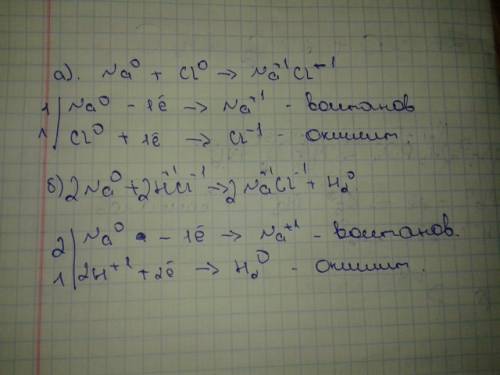 а). Na⁰ + Cl⁰ → Na⁺¹Cl⁻¹
1 | Na⁰ - 1ē → Na⁺¹ - восстанов
1 | Cl⁰ + 1ē → Cl⁻¹ - окислит.
б) 2Na⁰ + 2H⁺¹Cl⁻¹ → 2Na⁺¹Cl⁻¹ + H₂⁰
2 | Na⁰ - 1ē → Na⁺¹ - восстанов.
1 | 2H⁺¹ + 2ē → H₂⁰ - окислит.